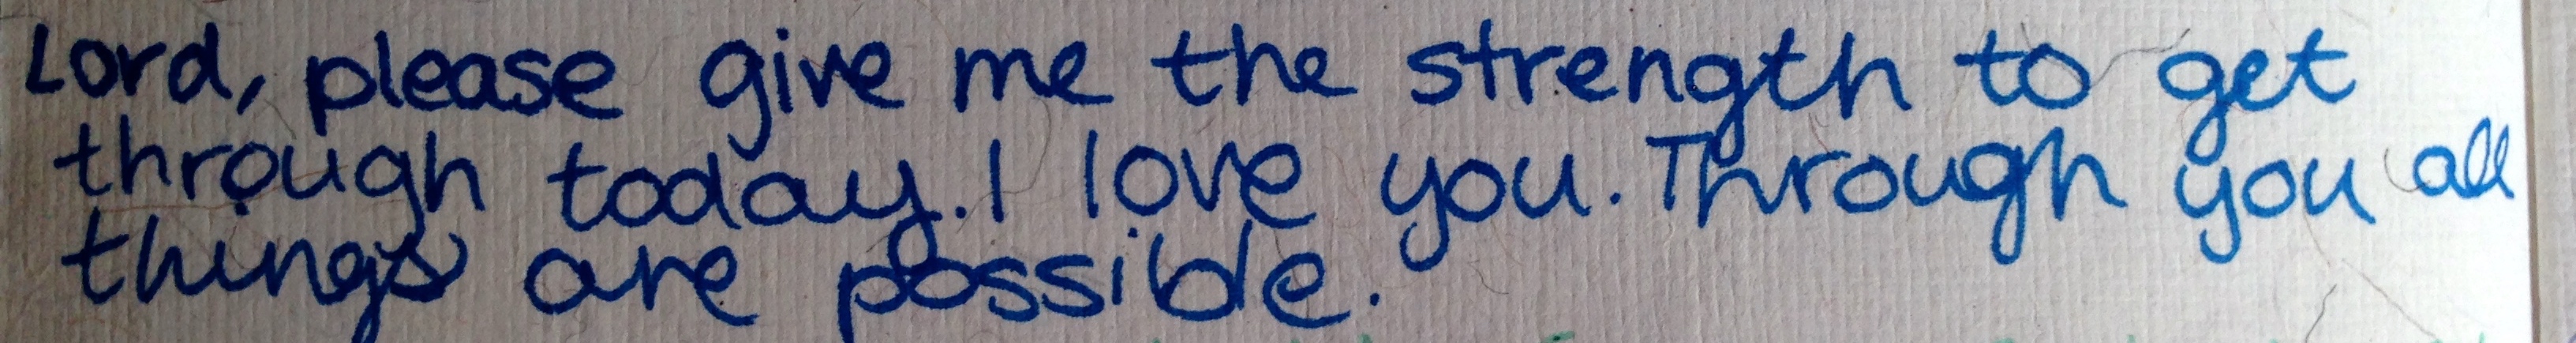 Lord, please give me the strength to get
through today. I love you. Through you all
things are possible.